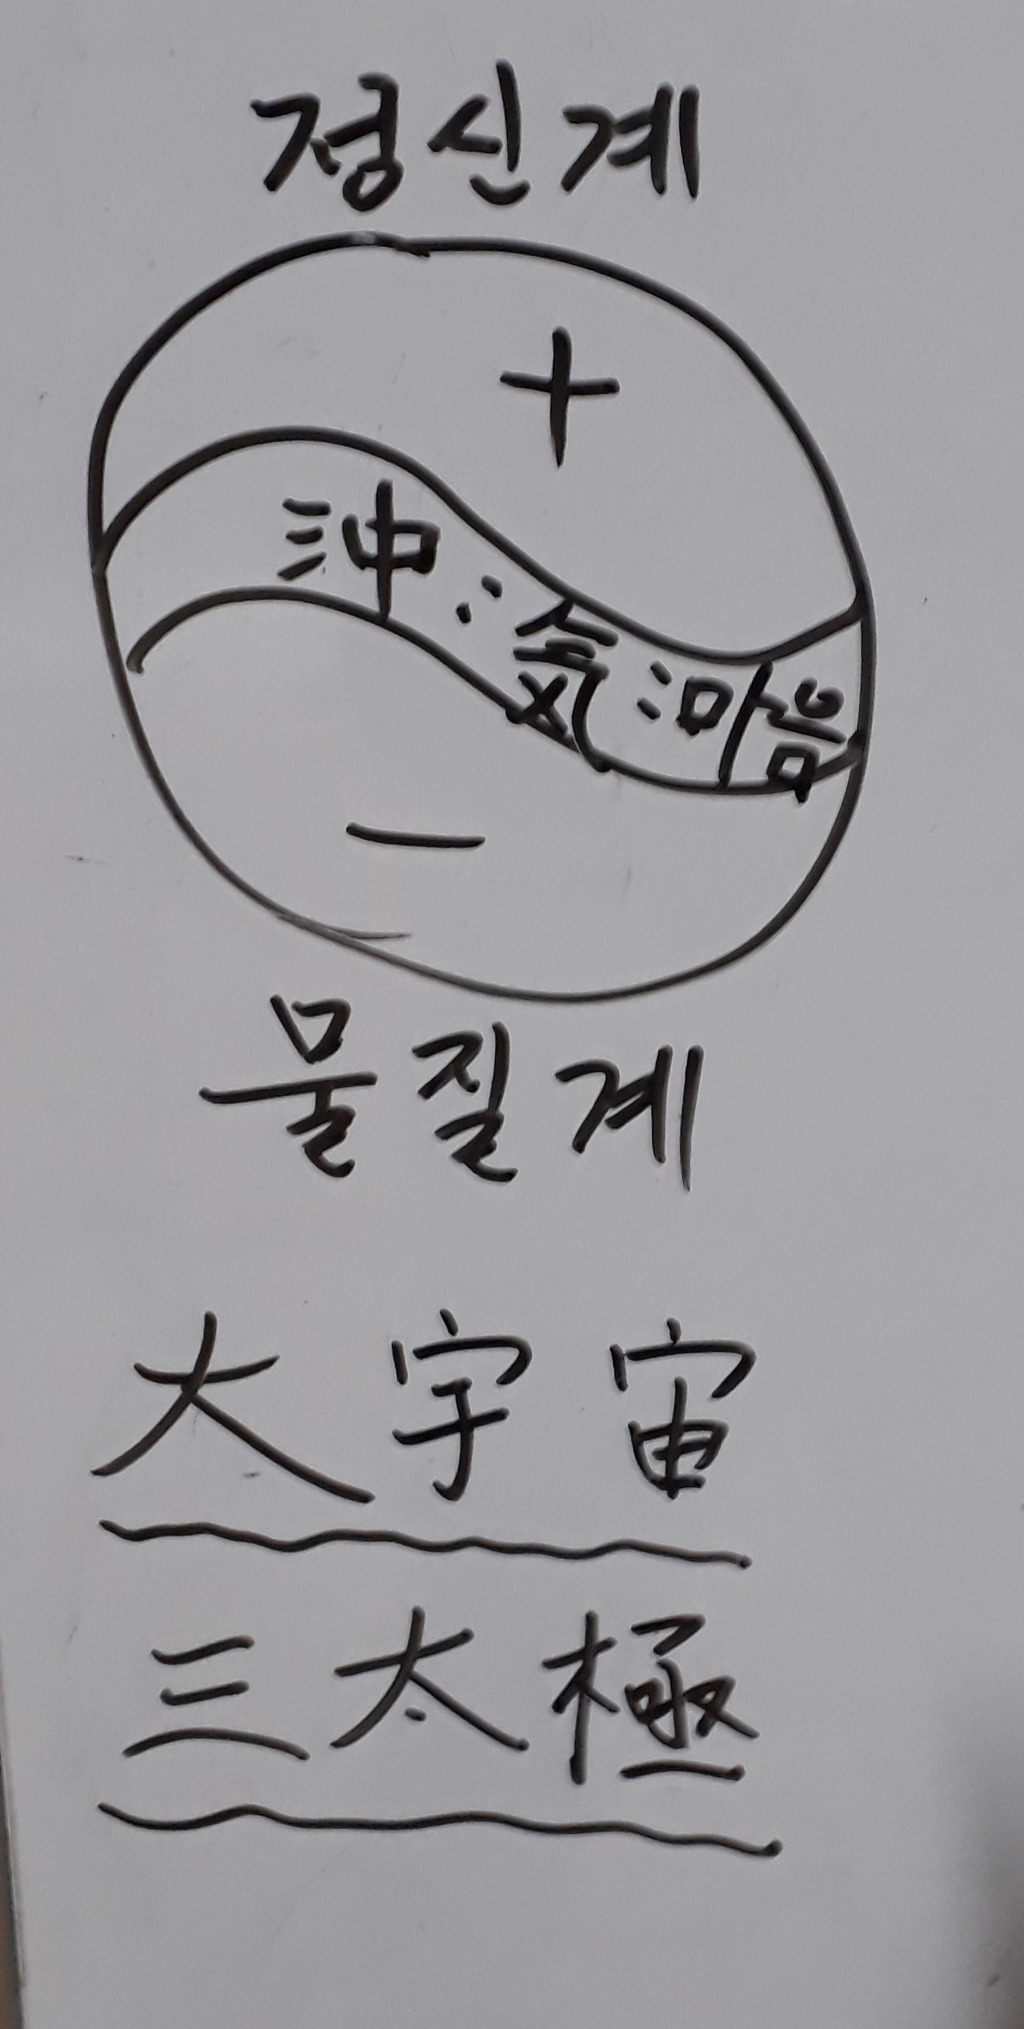 정신계
+
沖:気:마음
-
물질계
大宇宙
三太極